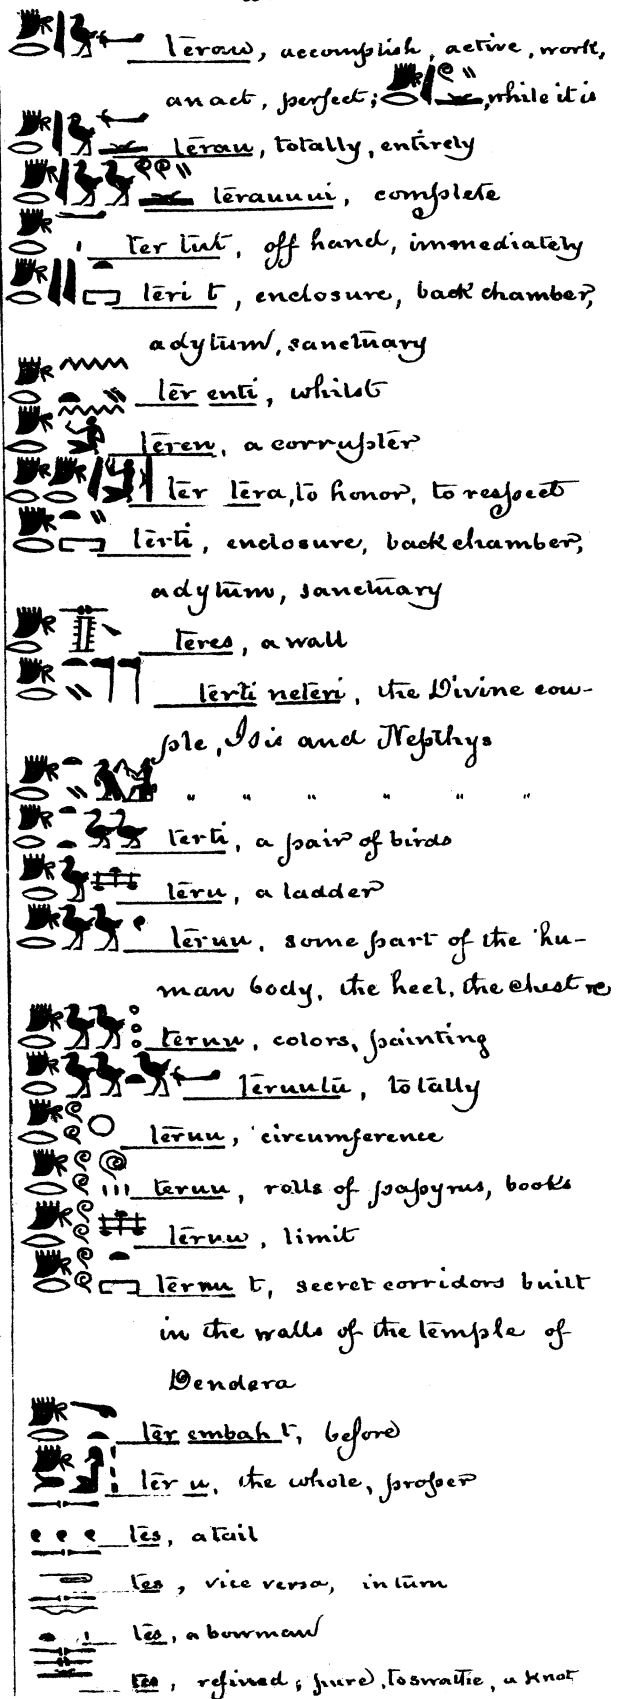 terau, accomplish, active, work,
an act, perfect; while it is
terau, totally, entirely
terauuui, complete
ter tut, off hand, immediately
teri t, enclosure, back chamber,
adytum, sanctuary
ter enti, whilst
teren, a corrupter
ter tera, to honor, to respect
terti, enclosure, back chamber,
adytum, sanctuary
teres, a wall
terti neteri, the Divine cou-
ple, Isis and Nepthys
" " " " " "
terti, a pair of birds
teru, a ladder
teruu, some part of the hu-
man body, the heel, the chest
teruu, colors, painting
teruutu, totally
teruu, circumference
teruu, rolls of papyrus, books
teruu, limit
teruu t, secret corridors built
in the walls of the temple of
Dendera
ter embah t, before
ter u, the whole, proper
tes, a tail
tes, vice versa, in turn
tes, a bowman
tes, refined; pure, a knot